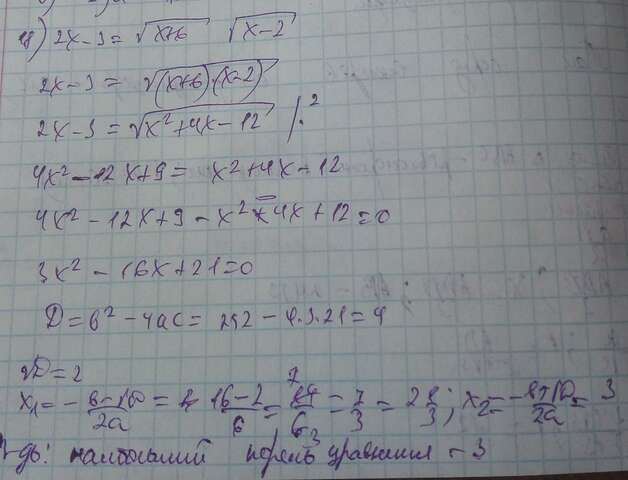 18) 2x-3 = √x+6 √x-2
2x-3 = √(x+6)·(x-2)
2x-3 = √x²+4x-12 /·²
4x²-12x+9 = x²+4x-12
4x²-12x+9-x²-4x+12=0
3x²-16x+21=0
D=b²-4ac= 252-4.3.21=4
√D=2
x₁=-b-√D/2a = 16-2/6 = 14/6 = 7/3 = 2 1/3; x₂=-b+√D/2a = 3
наибольший корень уравнения - 3